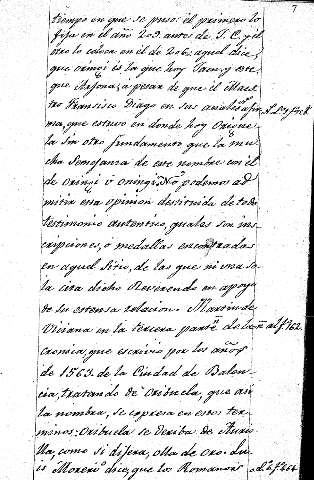 7
tiempo en que se puso: el primero lo
fija en el año 209. antes de J. C. y el
otro lo coloca en el de 206: aquel dice,
que oringi es la que hoy Jaen, y este
que Arjona; a pesar de que el Maes
tro Francisco Diago en sus anales afir
ma, que estuvo en donde hoy Origue
la sin otro fundamento que la mu
cha semejanza de este nombre con el
de oringi ó oningi. No podemos ad
mitir esta opinion destituida de todo
testimonio autentico, quales son ins
cripciones, ó medallas encontradas
en aquel sitio, de las que ni una so
la cita dicho Reverendo en apoyo
de su estensa relacion. Martin de
Viciana en la tercera parte de la
cronica, que escrivio por los años
de 1563. de la Ciudad de Balen
cia, tratando de Orihuela, que asi
la nombra, se expresa en estos ter
minos: Orihuela se deriba de Auruo
lla, como si dijera, olla de oro. Lu
is Moreri dice, que los Romanos